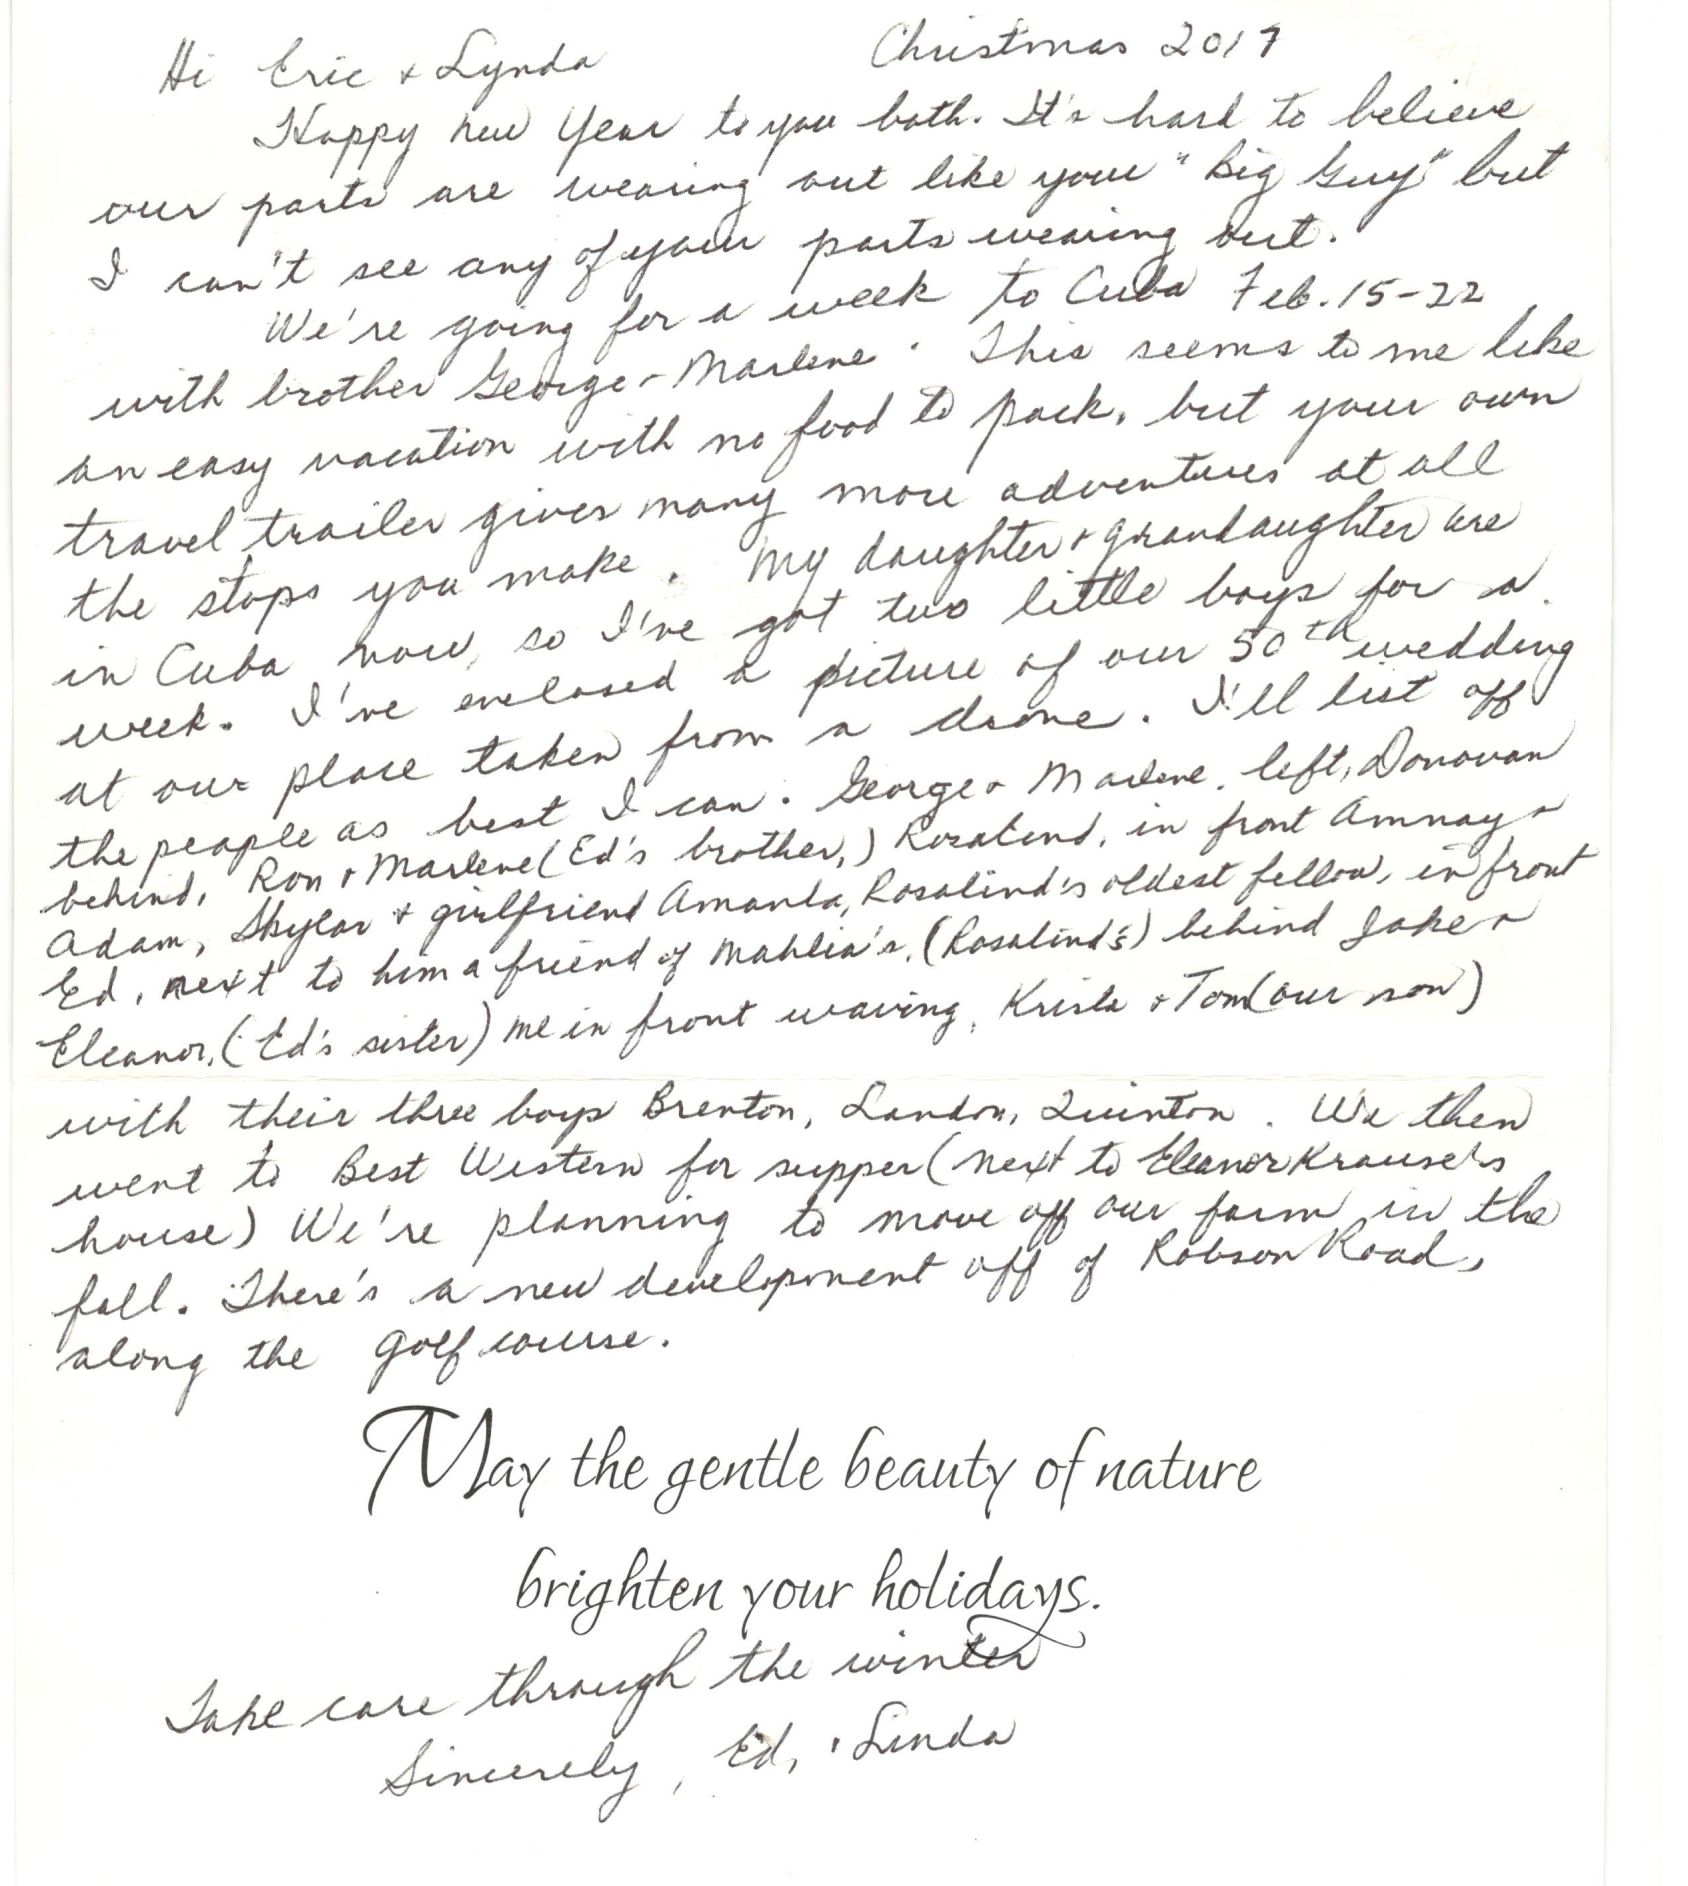 Christmas 2017
Hi Eric & Lynda
Happy new Year to you both. It's hard to believe
our parts are wearing out like your "Big Guy" but
I can't see any of your parts wearing out.
We're going for a week to Cuba Feb. 15-22
with brother George & Marlene. This seems to me like
an easy vacation with no food to pack, but your own
travel trailer gives many more adventures at all
the stops you make. My daughter & grandaughter are
in Cuba now, so I've got two little boys for a
week. I've enclosed a picture of our 50th wedding
at our place taken from a drone. I'll list off
the people as best I can. George & Marlene, left, Donovan
behind, Ron & Marlene (Ed's brother,) Rosalind, in front Amnay &
Adam, Skylar & girlfriend Amanda, Rosalind's oldest fellow, in front
Ed, next to him a friend of Mahlia's, (Rosalind's) behind Jake &
Eleanor, (Ed's sister) me in front waving, Krista & Tom (our son)
with their three boys Brenton, Landon, Quinton. We then
went to Best Western for supper (next to Eleanor Krause's
house) We're planning to move off our farm in the
fall. There's a new development off of Robson Road,
along the golf course.
May the gentle beauty of nature
brighten your holidays.
Take care through the winter
Sincerely, Ed, & Linda